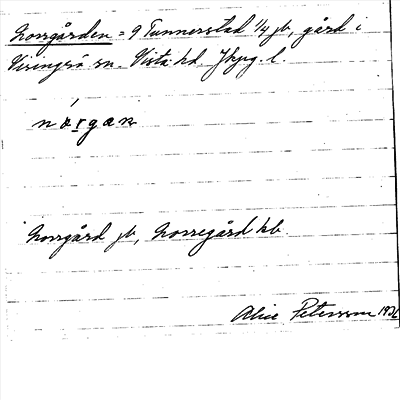 Norrgården = 9 Tunnerstad 1/4 jb, gård i
Visingsö sn. Vista hd, Jkpg. l.
norgan
Norrgård jb, Norregård kb
Alice Petersson 1926